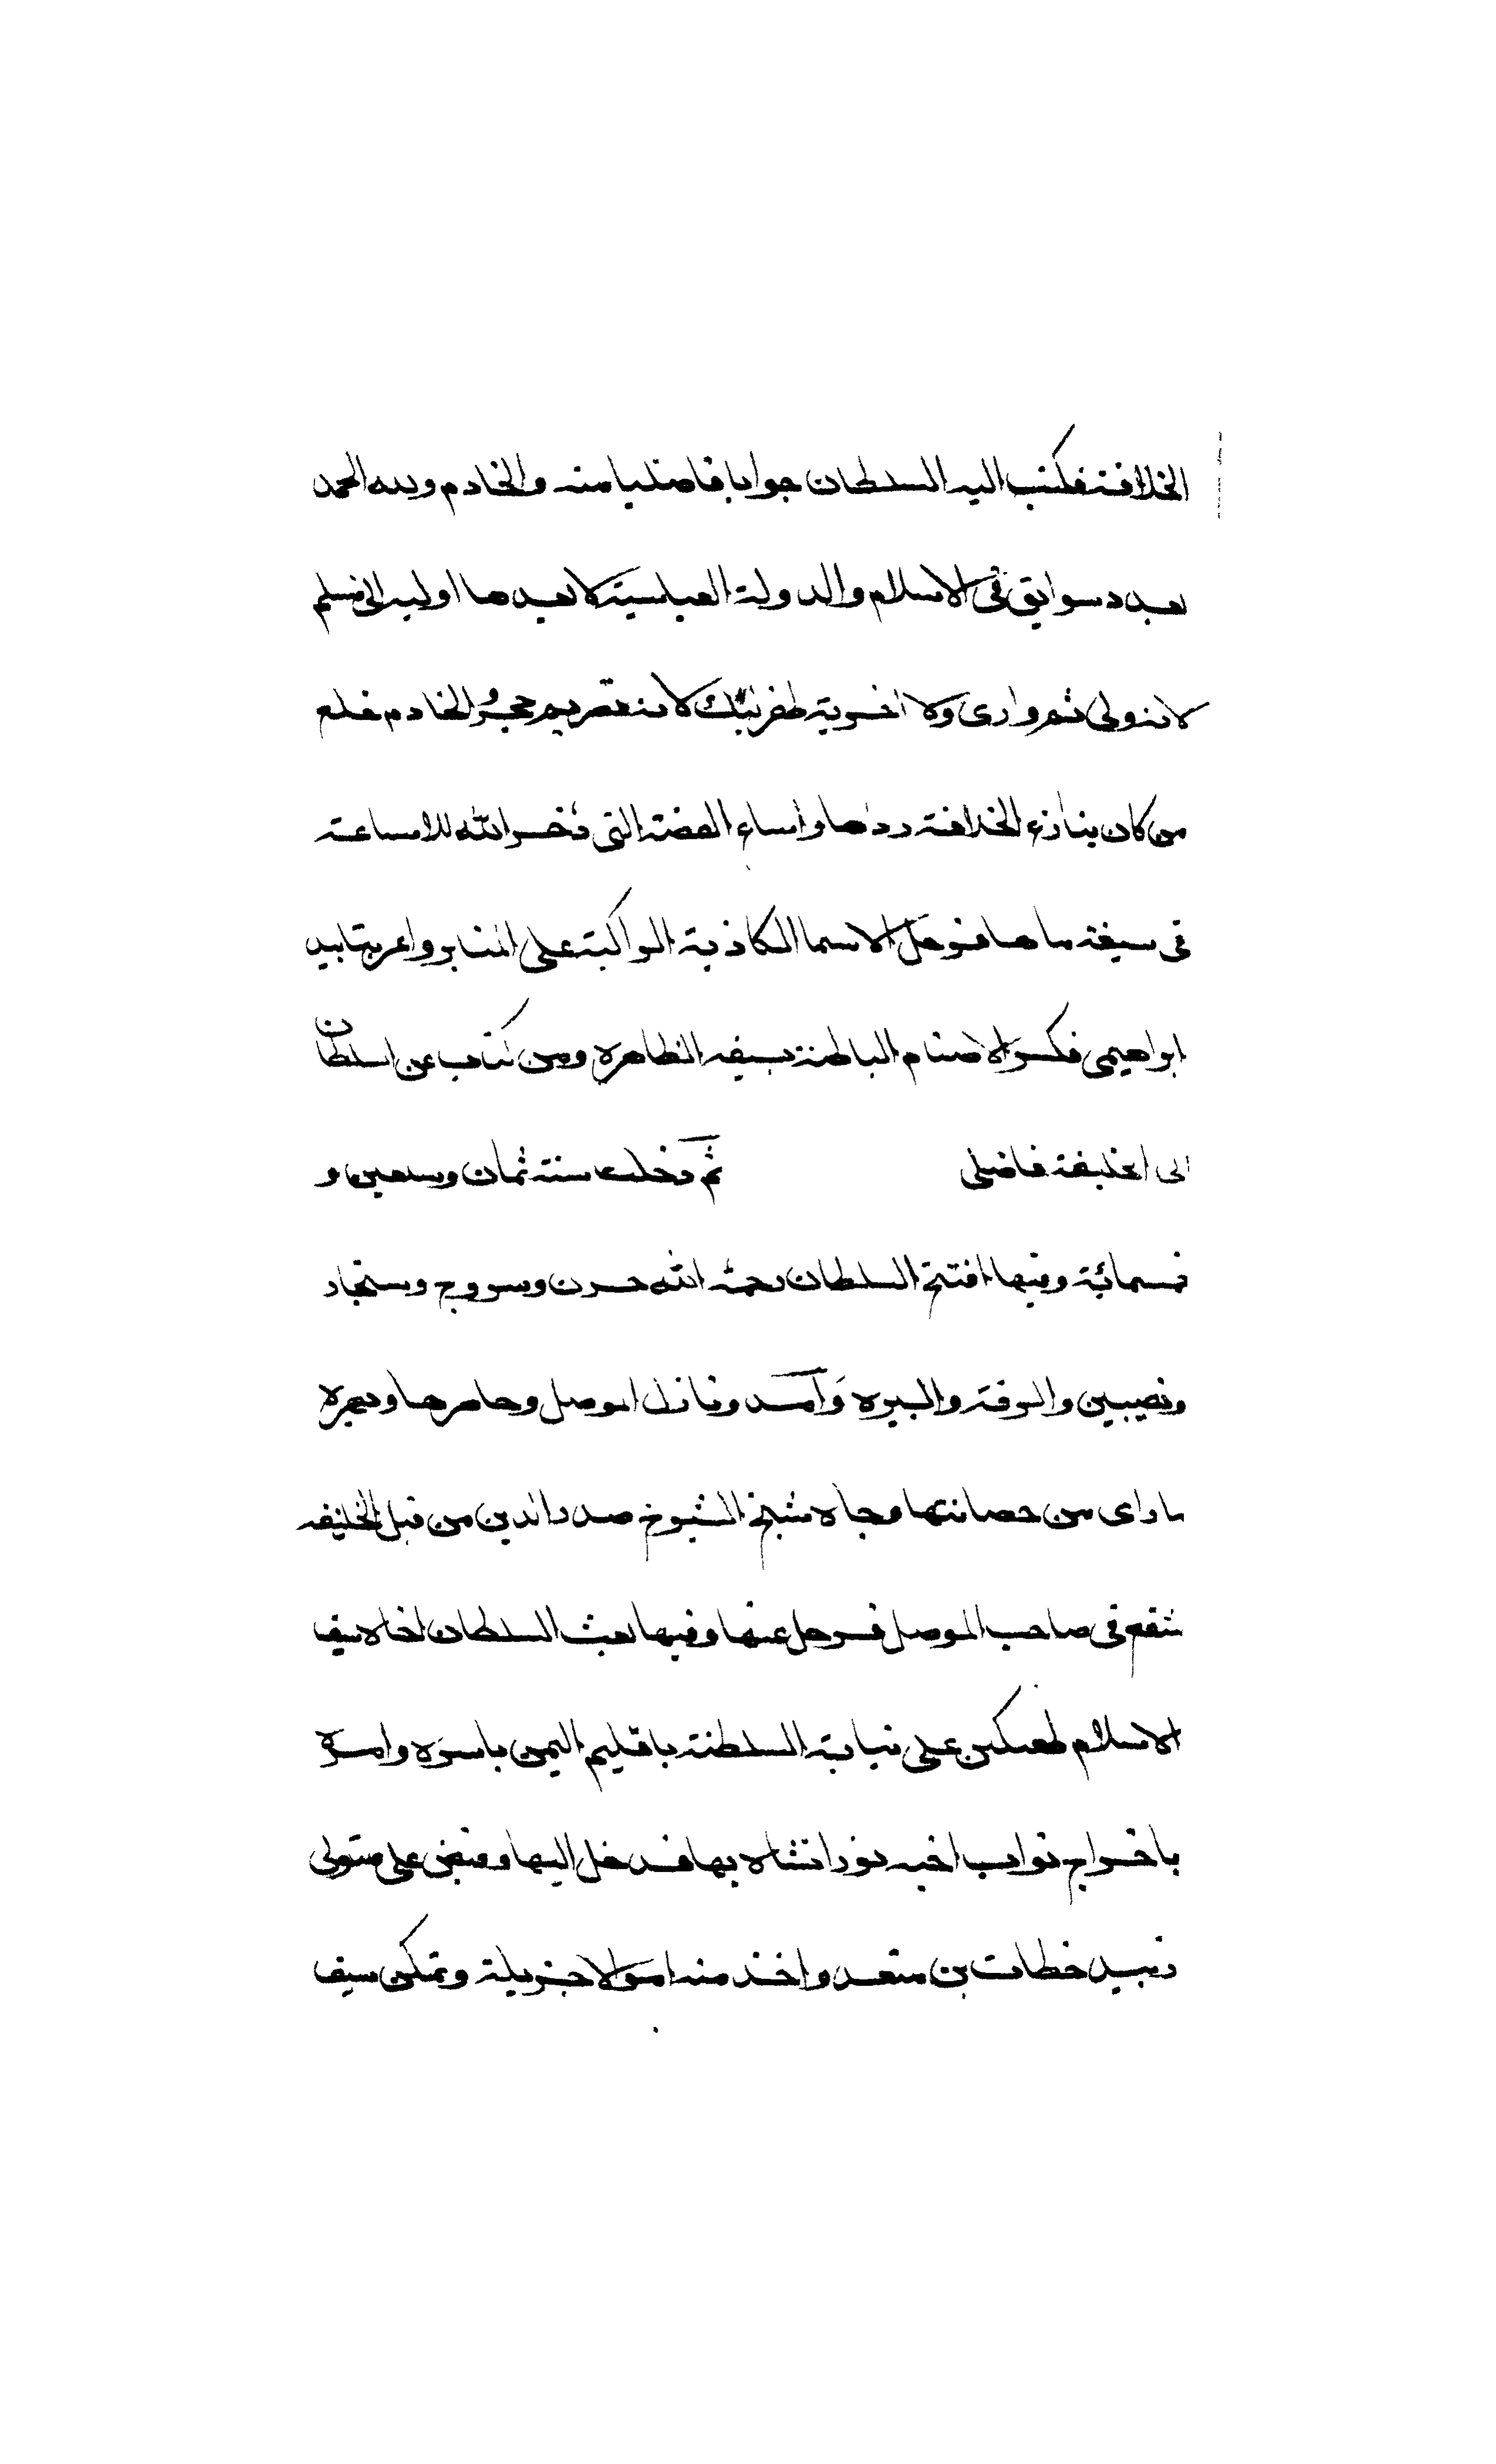 الخلافة فكتب اليه السلطان جوابا فاضليا منه والخادم ولله الحمد
يعدد سوابق في الاسلام والدولة العباسية لا يعدها اولية ابي مسلم
لانه ولي ثم وارى ولا اخرية طغرلبك لانه نصر ثم حجر والخادم خلع
من كان ينازع الخلافة رداها واساغ الغصة التي ذخر الله للاساعة
في سيفه ماها فرجل الاسما الكاذبة الراكبة على المنابر واعز بتاييد
ابراهيمي فكسر الاصنام الباطنة بسيفه الظاهرة ومن كتاب عن السلطان
الى الخليفة فاضلي ثم دخلت سنة ثمان وسبعين و
خمسمائة وفيها افتتح السلطان رحمه الله حرن وسروج وسنجار
ونصيبين والرقة والبيرة وآمد ونازل الموصل وحاصرها وبهره
ما راى من حصانتها وجاه شيخ الشيوخ صدر الدين من قبل الخليفه
شفع في صاحب الموصل فرحل عنها وفيها بعث السلطان اخاه سيف
الاسلام طغتكين على نيابة السلطنة باقليم اليمن باسره وامره
باخراج نواب اخيه تورانشاه بها فدخل اليها وقبض على متولي
زبيد خطاب بن منقد واخذ منه اموالا جزيلة وتمكن سيف